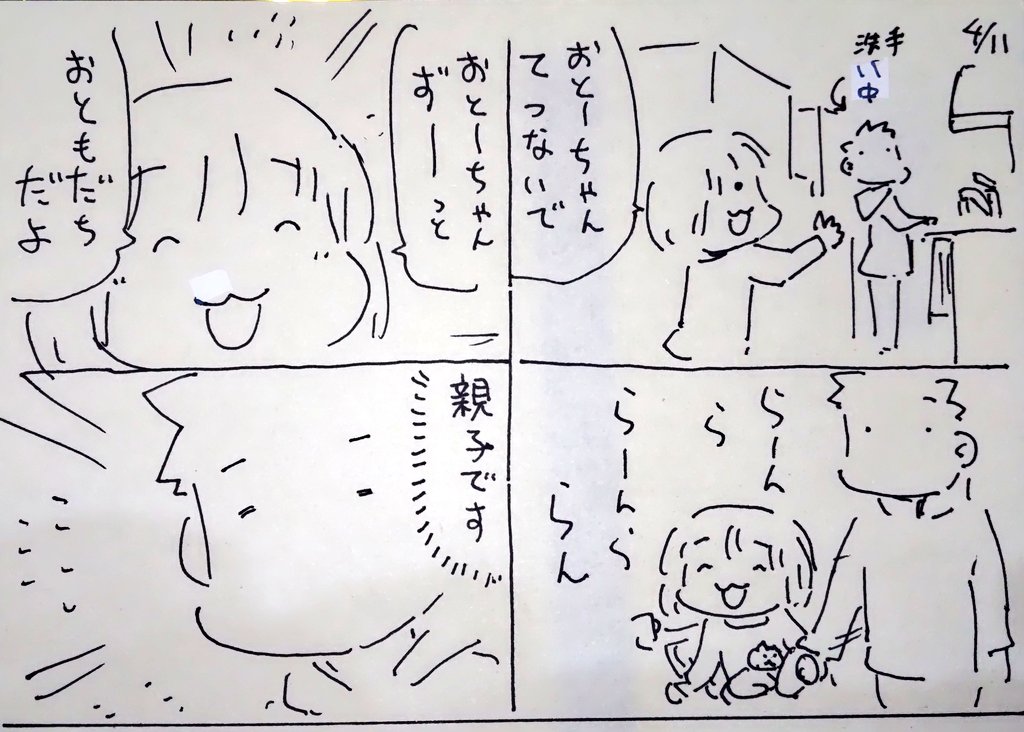 4/11
洗手
い中
おとーちゃん
てつないで
らーん
ら
らーんら
らん
おとーちゃん
ずーっと
おともだち
だよ
親子です